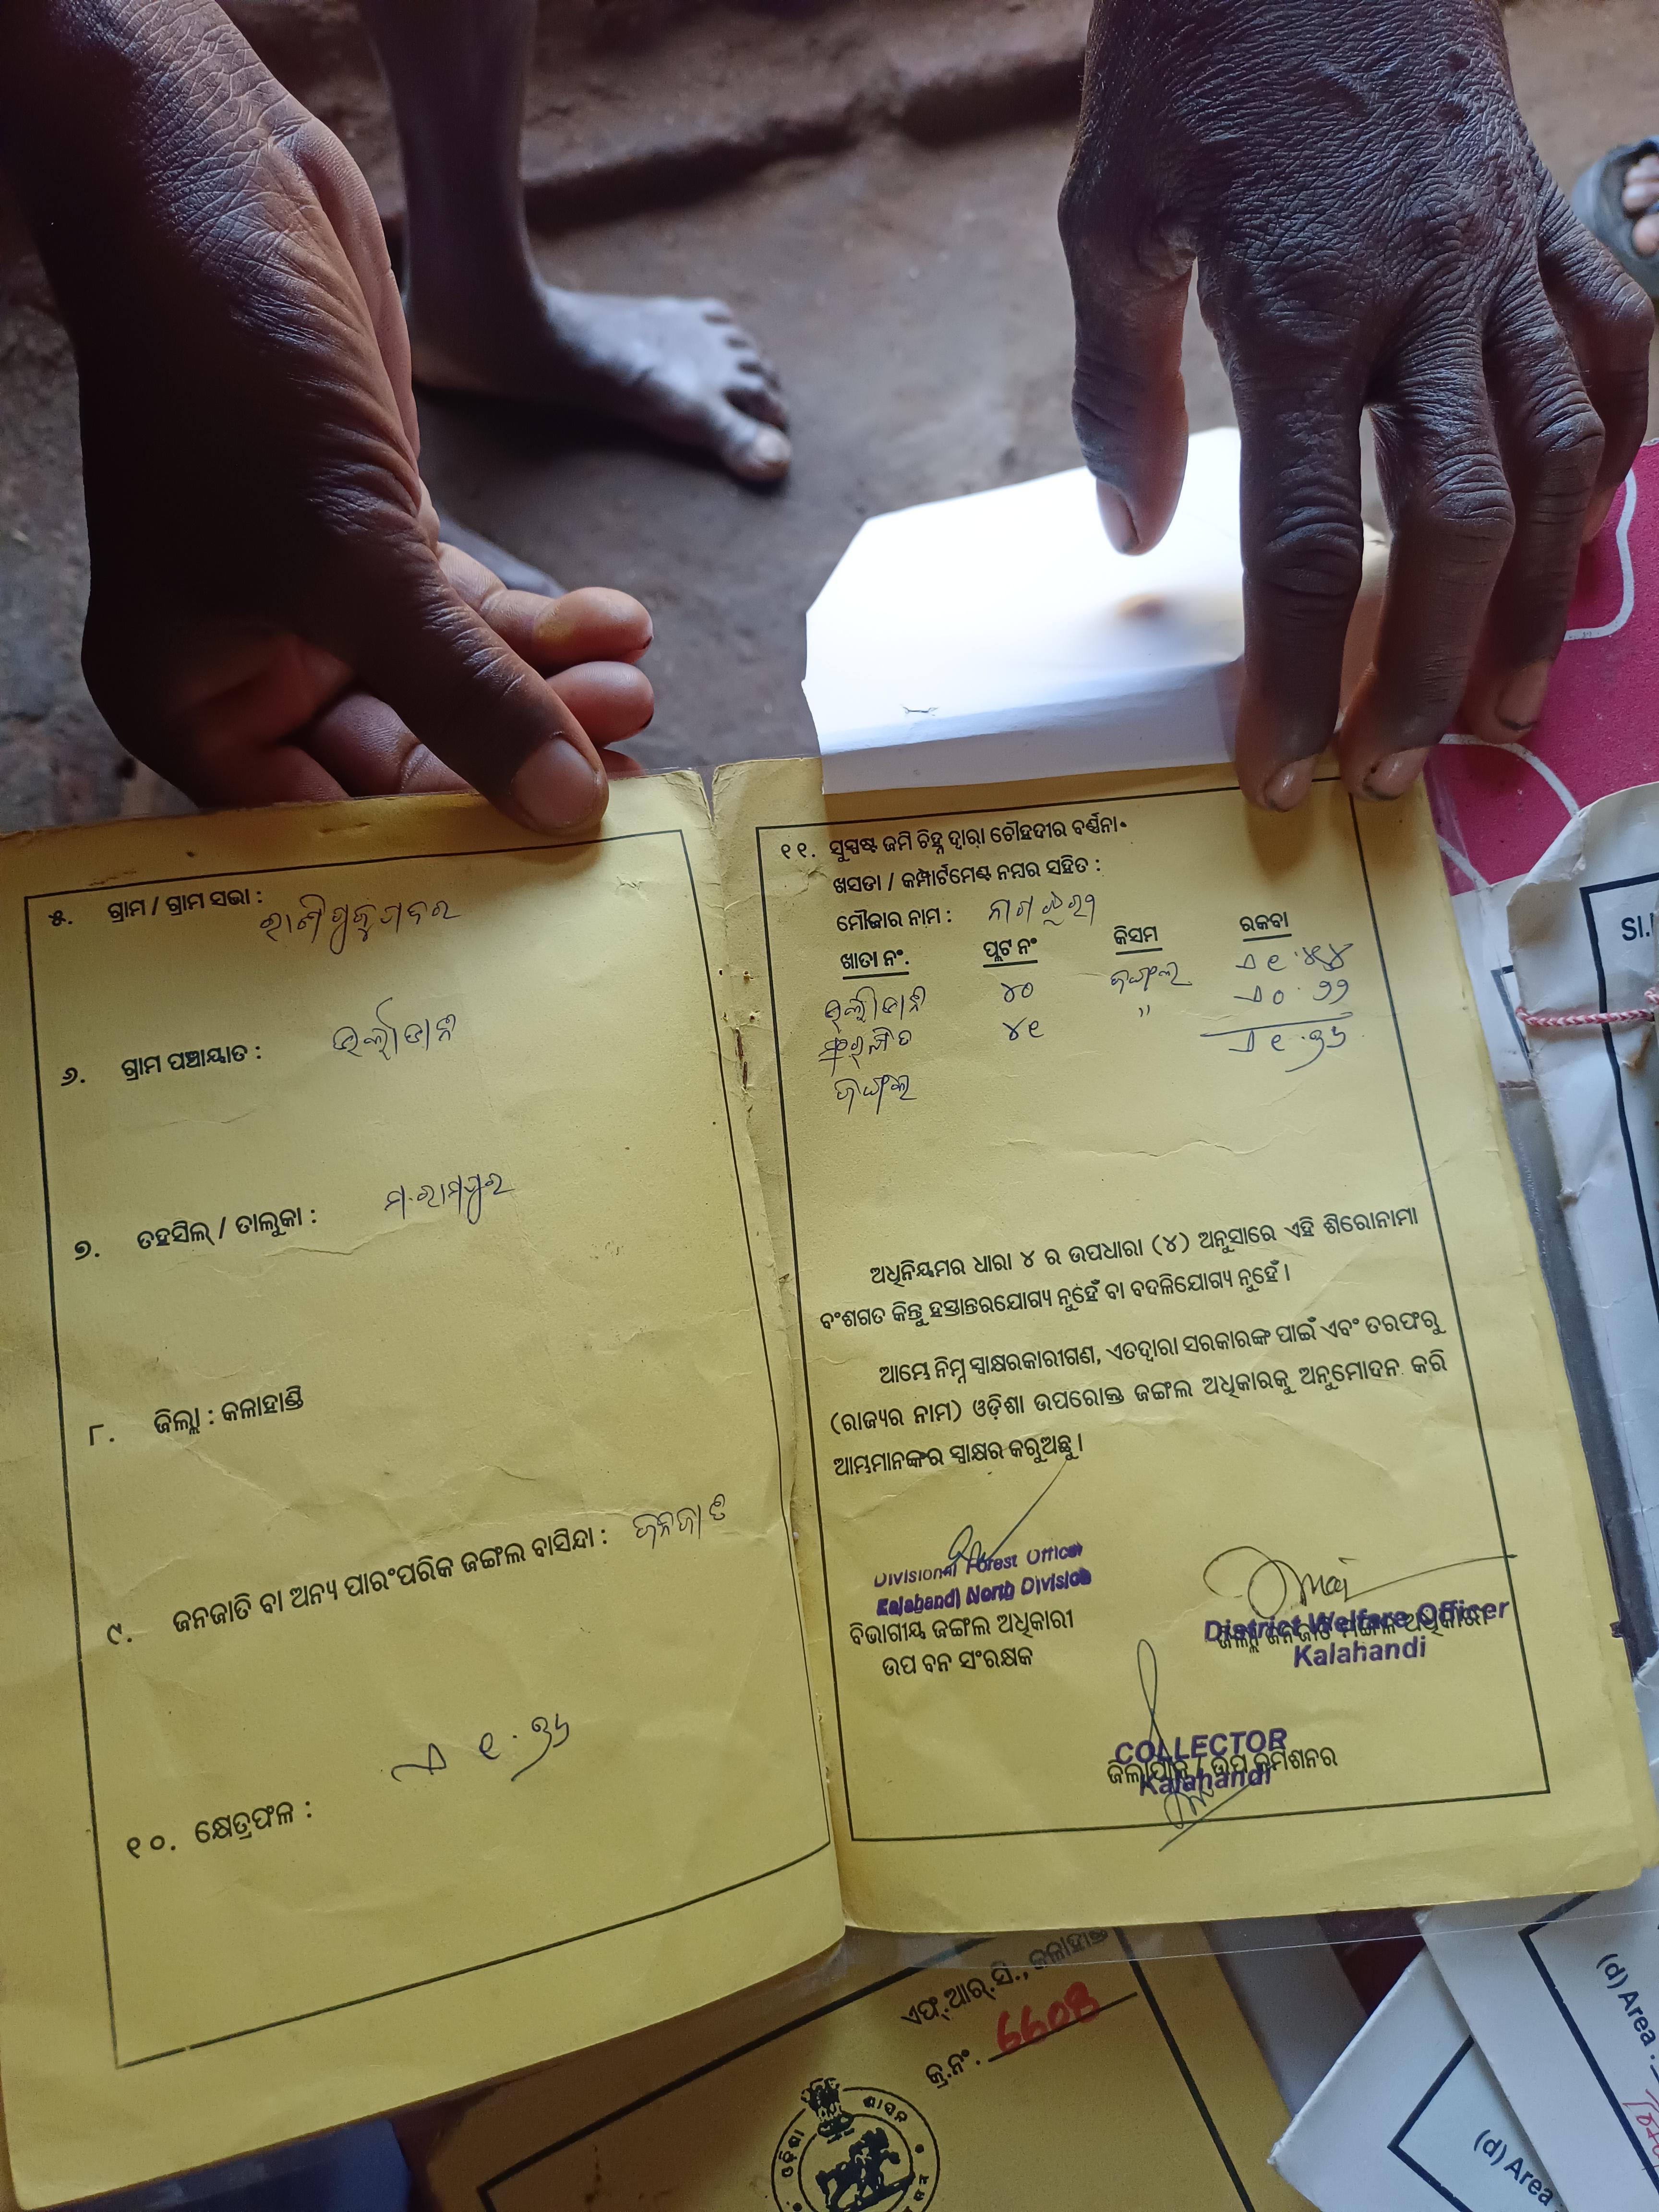 ୫. ଗ୍ରାମ / ଗ୍ରାମ ସଭା :
୬. ଗ୍ରାମ ପଞ୍ଚାୟାତ :
୭. ତହସିଲ୍ / ତାଲୁକା : ମ.ରାମପୁର
୮. ଜିଲ୍ଲା : କଳାହାଣ୍ଡି
୯. ଜନଜାତି ବା ଅନ୍ୟ ପାରଂପରିକ ଜଙ୍ଗଲ ବାସିନ୍ଦା : ଜନଜାତି
୧୦. କ୍ଷେତ୍ରଫଳ : ଏ ୧.୩୬
୧୧. ସୁସ୍ପଷ୍ଟ ଜମି ଚିହ୍ନ ଦ୍ୱାରା ଚୌହଦୀର ବର୍ଣ୍ଣନା
ଖସଡା / କମ୍ପାର୍ଟମେଣ୍ଟ ନମ୍ବର ସହିତ :
ମୌଜାର ନାମ :
ଖାତା ନଂ. ପ୍ଲଟ ନଂ କିସମ ରକବା
୪୦ ଜଙ୍ଗଲ
୪୧ " ଏ ୦.୭୭
ଏ ୧.୩୬
ଜଙ୍ଗଲ
ଅଧିନିୟମର ଧାରା ୪ ର ଉପଧାରା (୪) ଅନୁସାରେ ଏହି ଶିରୋନାମା
ବଂଶଗତ କିନ୍ତୁ ହସ୍ତାନ୍ତରଯୋଗ୍ୟ ନୁହେଁ ବା ବଦଳିଯୋଗ୍ୟ ନୁହେଁ ।
ଆମ୍ଭେ ନିମ୍ନ ସ୍ୱାକ୍ଷରକାରୀଗଣ, ଏତଦ୍ୱାରା ସରକାରଙ୍କ ପାଇଁ ଏବଂ ତରଫରୁ
(ରାଜ୍ୟର ନାମ) ଓଡ଼ିଶା ଉପରୋକ୍ତ ଜଙ୍ଗଲ ଅଧିକାରକୁ ଅନୁମୋଦନ କରି
ଆମ୍ଭମାନଙ୍କର ସ୍ୱାକ୍ଷର କରୁଅଛୁ ।
Divisional Forest Officer
Kalahandi North Division
ବିଭାଗୀୟ ଜଙ୍ଗଲ ଅଧିକାରୀ
ଉପ ବନ ସଂରକ୍ଷକ
District Welfare Officer
ଜିଲ୍ଲା ଜନଜାତି ମଙ୍ଗଳ ଅଧିକାରୀ
Kalahandi
COLLECTOR
ଜିଲାପାଳ / ଉପ କମିଶନର
Kalahandi
ଏଫ୍.ଆର୍.ସି., କଳାହାଣ୍ଡି
କ୍ର.ନଂ. 6608
ଓଡ଼ିଶା ଶାସନ
(d) Area
(d) Area